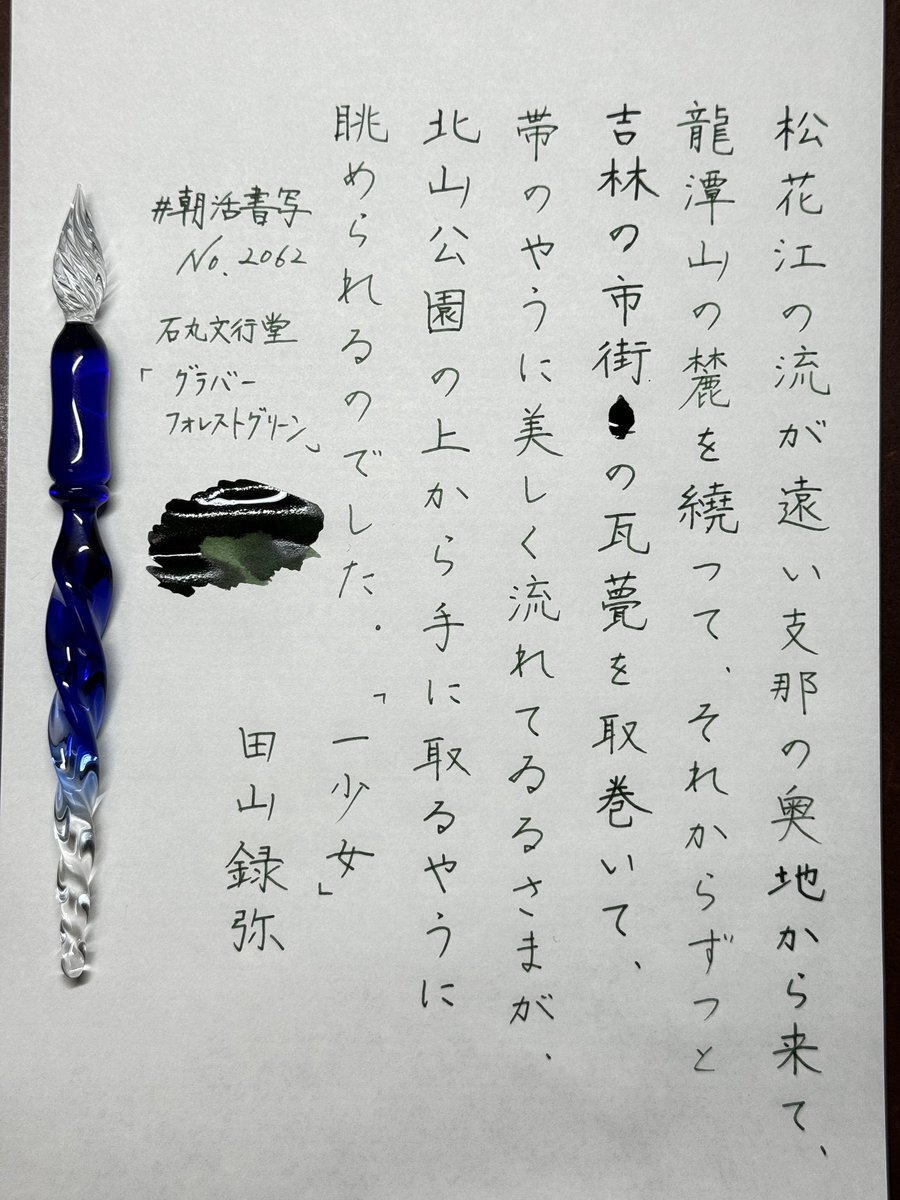 松花江の流が遠い支那の奥地から来て、
龍潭山の麓を繞って、それからずつと
吉林の市街の瓦甍を取巻いて、
帯のやうに美しく流れてゐるさまが、
北山公園の上から手に取るやうに
眺められるのでした.「一少女」
田山録弥
#朝活書写
No.2062
石丸文行堂
「グラバー
フォレストグリーン」